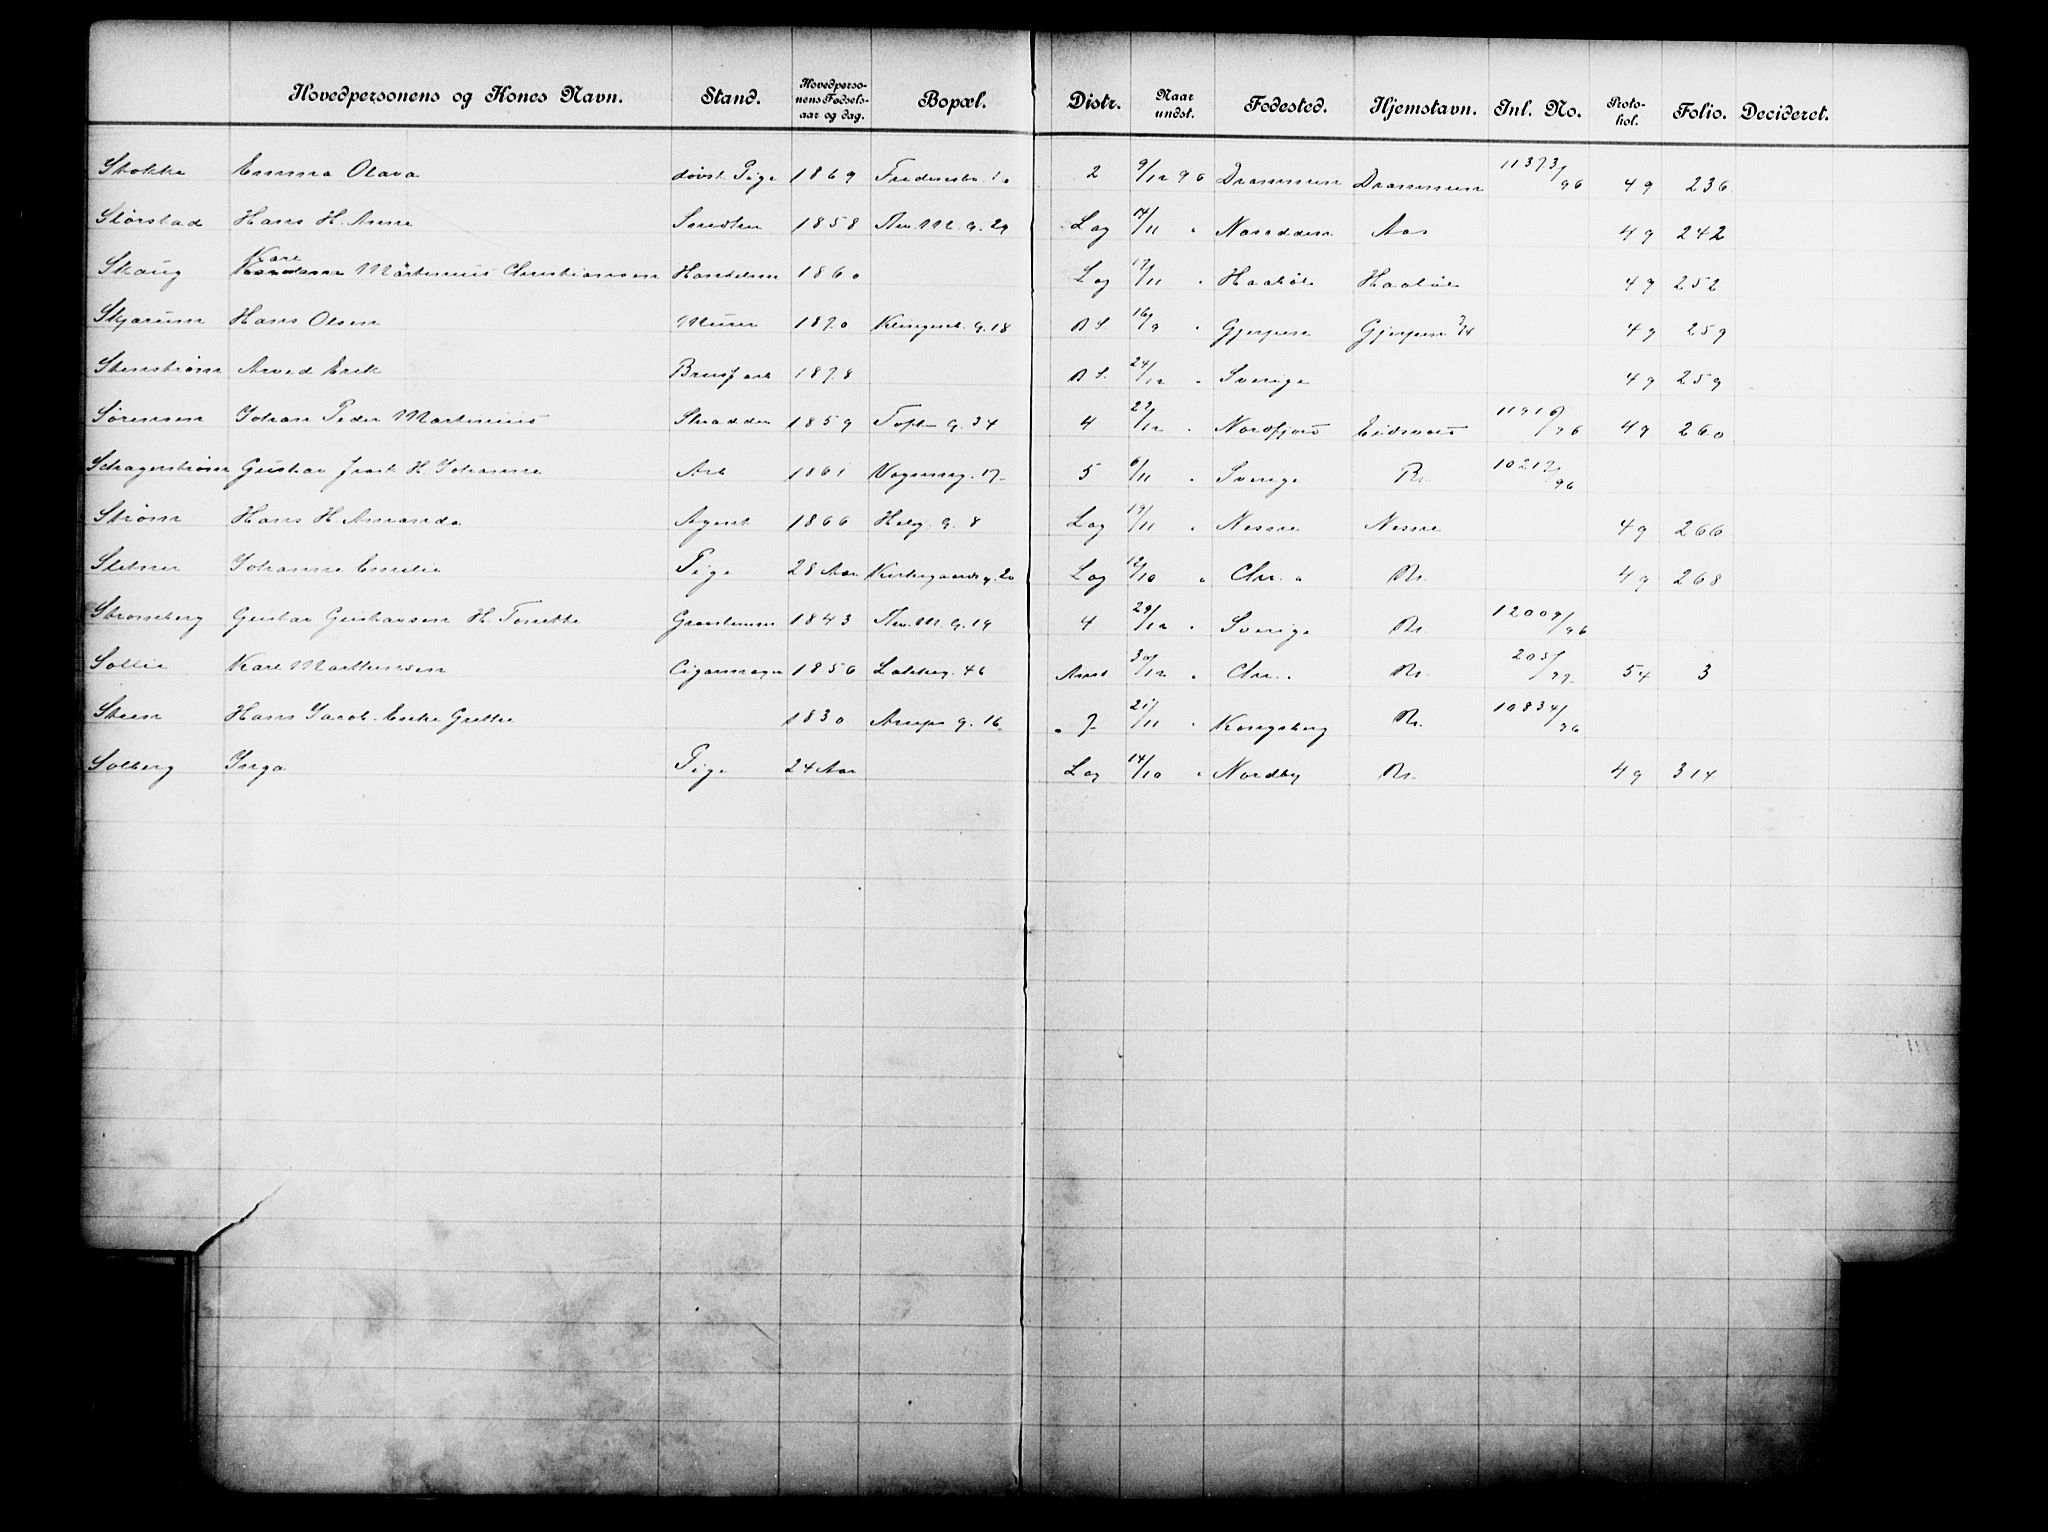 Hovedpersonens og Kones Navn. Stand. Hovedperso-nens Fødsels-aar og dag. Bopæl. Distr. Naar undst. Fødested. Hjemstavn. Inl. No. Proto-kol. Folio. Decideret.
Stokke Emma Olava døvst. Pige 1869 2 9/12 96 Drammen Drammen 11373/96 49 236
Størstad Hans H. Anne 1858 Lag 14/11 " Aas 49 242
Skaug Kare Martinius Christiansen Handelsm 1860 Lag 17/11 " Haabøl Haabøl 49 252
Skjarum Hans Olsen Murer 1870 Klingenb. g. 18 B S. 16/9 " Gjerpen Gjerpen 49 259
Stenstrøm Arved Erik 1878 B S. 24/12 " Sverige 49 259
Sørensen Johan Peder Martinius Skrædder 1859 Tofte g. 34 4 22/12 " Nordfjord Eidsvold 11916/96 49 260
Gustav H. Johanne Arb 1861 5 6/11 " Sverige 10217/96
Strøm Hans H. Amanda Agent 1866 Helg. g. 8 Lag 19/11 " Nesne Nesne 49 266
Johanne Emilie Pige 28 Aar Kirkegaards g. 20 Lag 12/10 " Chr. a 49 268
Stromberg Gustav Gustavsen H. Tonette 1843 4 29/12 " Sverige 12009/96
Sollie Karl Martinsen Cigarmager 1856 Lakkeg. 46 30/12 " Chr. a 205/97 54 3
Steen Hans Jacob. Grethe 1830 g. 16 " 7 21/11 " Kongsberg 10834/96
Solberg Inga Pige 24 Aar Lag 14/10 " Nordby 49 314